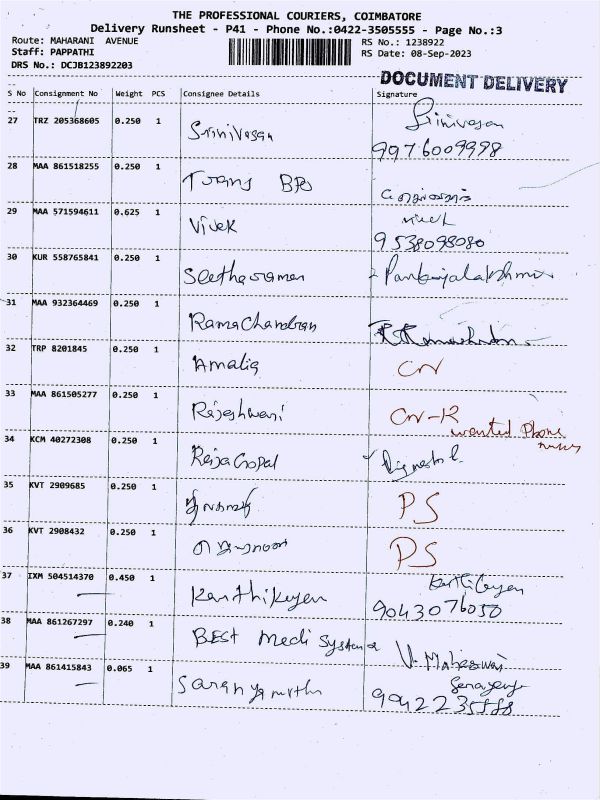 THE PROFESSIONAL COURIERS, COIMBATORE
Delivery Runsheet - P41 - Phone No.:0422-3505555 - Page No.:3
Route: MAHARANI AVENUE
RS No.: 1238922
Staff: PAPPATHI
RS Date: 08-Sep-2023
DRS No.: DCJB123892203
DOCUMENT DELIVERY
S No Consignment No Weight PCS Consignee Details Signature
27 TRZ 205368605 0.250 1 Srinivasan Srinivasan
9976009998
28 MAA 861518255 0.250 1 Trans
29 MAA 571594611 0.625 1 Vivek
9538098080
30 KUR 558765841 0.250 1 Seetharaman Pankajalakshmi
31 MAA 932364469 0.250 1 RamaChandran
32 TRP 8201845 0.250 1 Amalia CN
33 MAA 861505277 0.250 1 Rajeshwari CN-R
wanted Phone
34 KCM 40272308 0.250 1 RajaGopal
35 KVT 2909685 0.250 1 PS
36 KVT 2908432 0.250 1 PS
37 IXM 504514370 0.450 1 Karthikeyen Karthikeyen
9043076050
38 MAA 861267297 0.240 1 BEST Medi Systems V. Maheswari
39 MAA 861415843 0.065 1